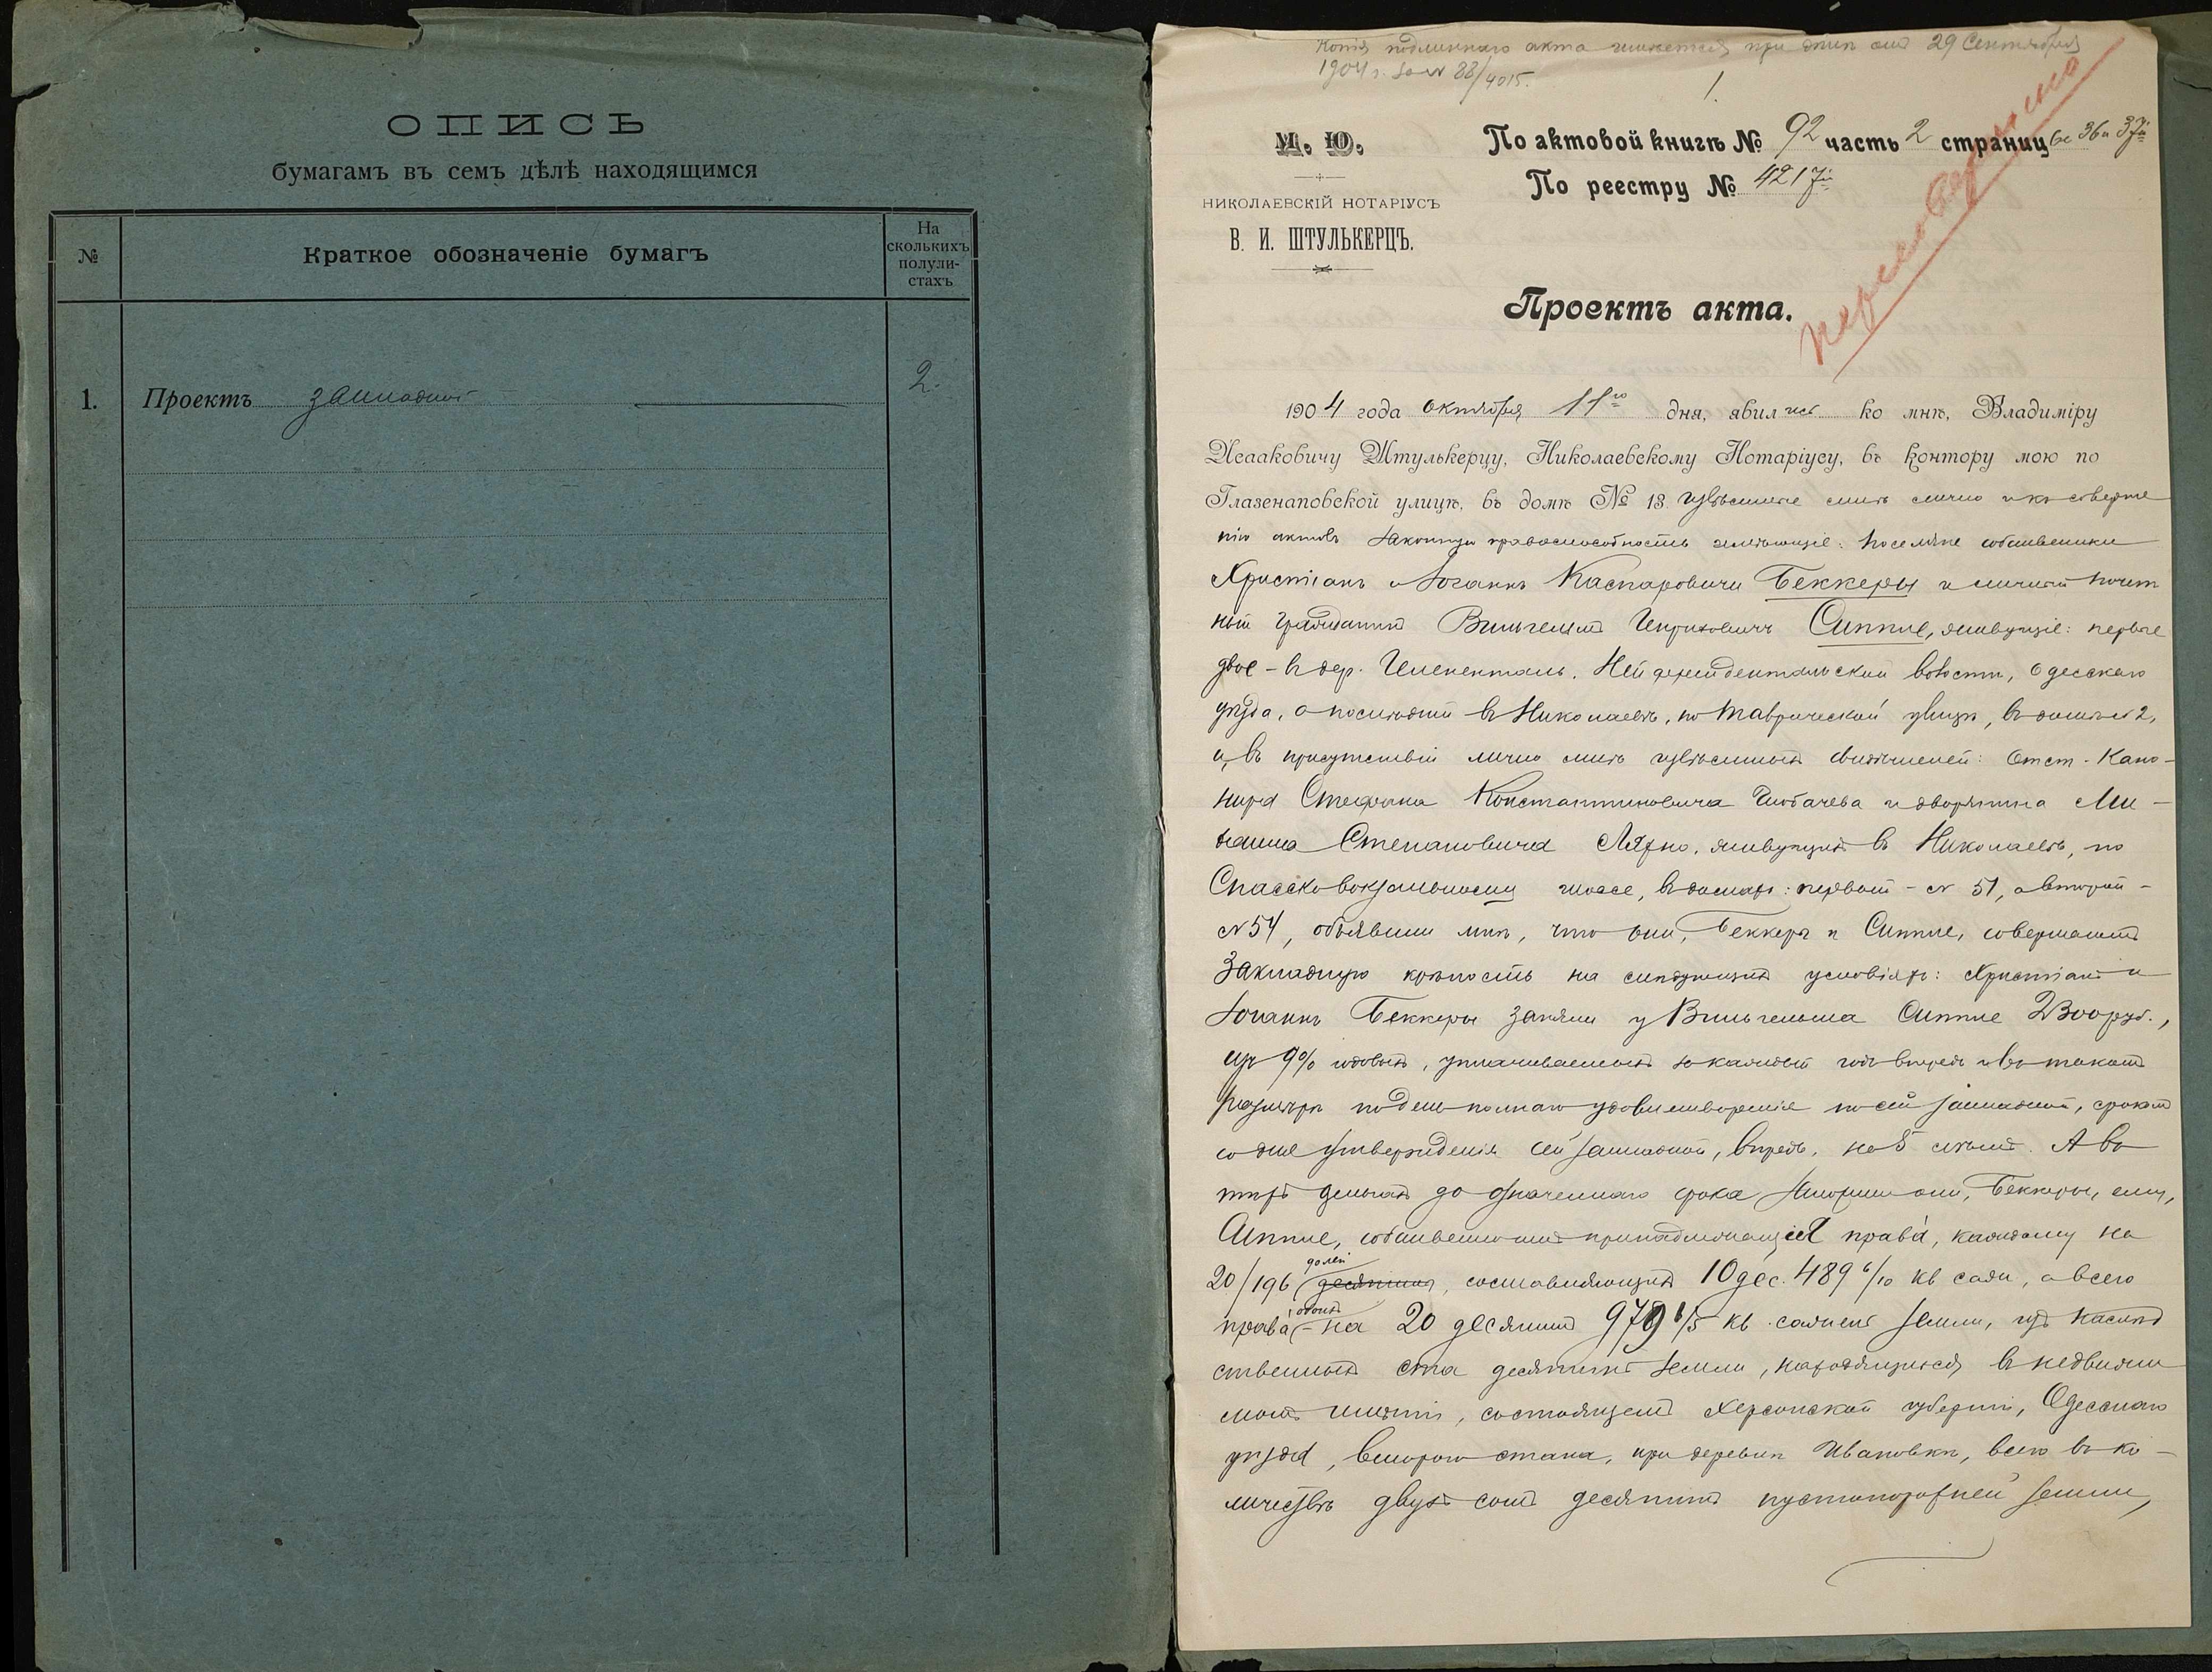 ОПИСЬ
бумагамъ въ семъ дѣлѣ находящимся
№
Краткое обозначеніе бумагъ
На
сколькихъ
полули-
стахъ
1. Проектъ закладной 2.
Копія подлиннаго акта имѣется при дѣлѣ от 29 Сентября
1904 г. за № 88/4015.
1.
М. Ю.
НИКОЛАЕВСКІЙ НОТАРІУСЪ
В. И. ШТУЛЬКЕРЦЪ.
По актовой книгѣ № 92 часть 2 страницы 36 и 37
По реестру № 4217
Проектъ акта.
1904 года октября 11го дня, явились ко мнѣ, Владиміру
Исааковичу Штулькерцу, Николаевскому Нотаріусу, въ контору мою по
Глазенаповской улицѣ, въ домѣ № 13 извѣстные мнѣ лично и къ соверше
нію актовъ законную правоспособность имѣющіе: поселяне собственники
Христіанъ и Іоганнъ Каспаровичи Беккеры и личный почет
ный гражданинъ Вильгельмъ Генриховичъ Сиппле, живущіе: первые
двое - въ дер. Гилененталь, Нейфрейдентальской волости, Одесскаго
уѣзда, а послѣдній въ Николаевѣ, по Таврической улицѣ, въ домѣ № 2,
и, въ присутствіи лично мнѣ извѣстныхъ свидѣтелей: Отст. Кано-
нира Стефана Константиновича и дворянина Ми-
хаила Степановича живущихъ въ Николаевѣ, по
Спасско вокзальному шоссе, въ домахъ: первый - № 51, а второй -
№ 54, объявили мнѣ, что они, Беккеры и Сиппле, совершаютъ
закладную крѣпость на слѣдующихъ условіяхъ: Христіанъ и
Іоганнъ Беккеры заняли у Вильгельма Сиппле 2300 руб.,
изъ 9% годовыхъ, уплачиваемыхъ за каждый годъ впередъ и въ такомъ
размѣрѣ по день полнаго удовлетворенія по сей закладной, срокомъ
со дня утвержденія сей закладной, впредь, на 5 лѣтъ. А въ
тѣхъ деньгахъ до означеннаго срока заложили они, Беккеры, ему,
Сиппле, собственно имъ принадлежащія права, каждому на
20/196 десятины долей, составляющихъ 10 дес. 489 6/10 кв саж, а всего
права обоихъ - на 20 десятинъ 979 1/5 кв. сажень земли, изъ наслѣд
ственныхъ ста десятинъ земли, находящихся въ недвижи
момъ имѣніи, состоящемъ Херсонской губерніи, Одесскаго
уѣзда, второго стана, при деревнѣ Ивановкѣ, всего въ ко-
личествѣ двухъ сотъ десятинъ пустопорожней земли,